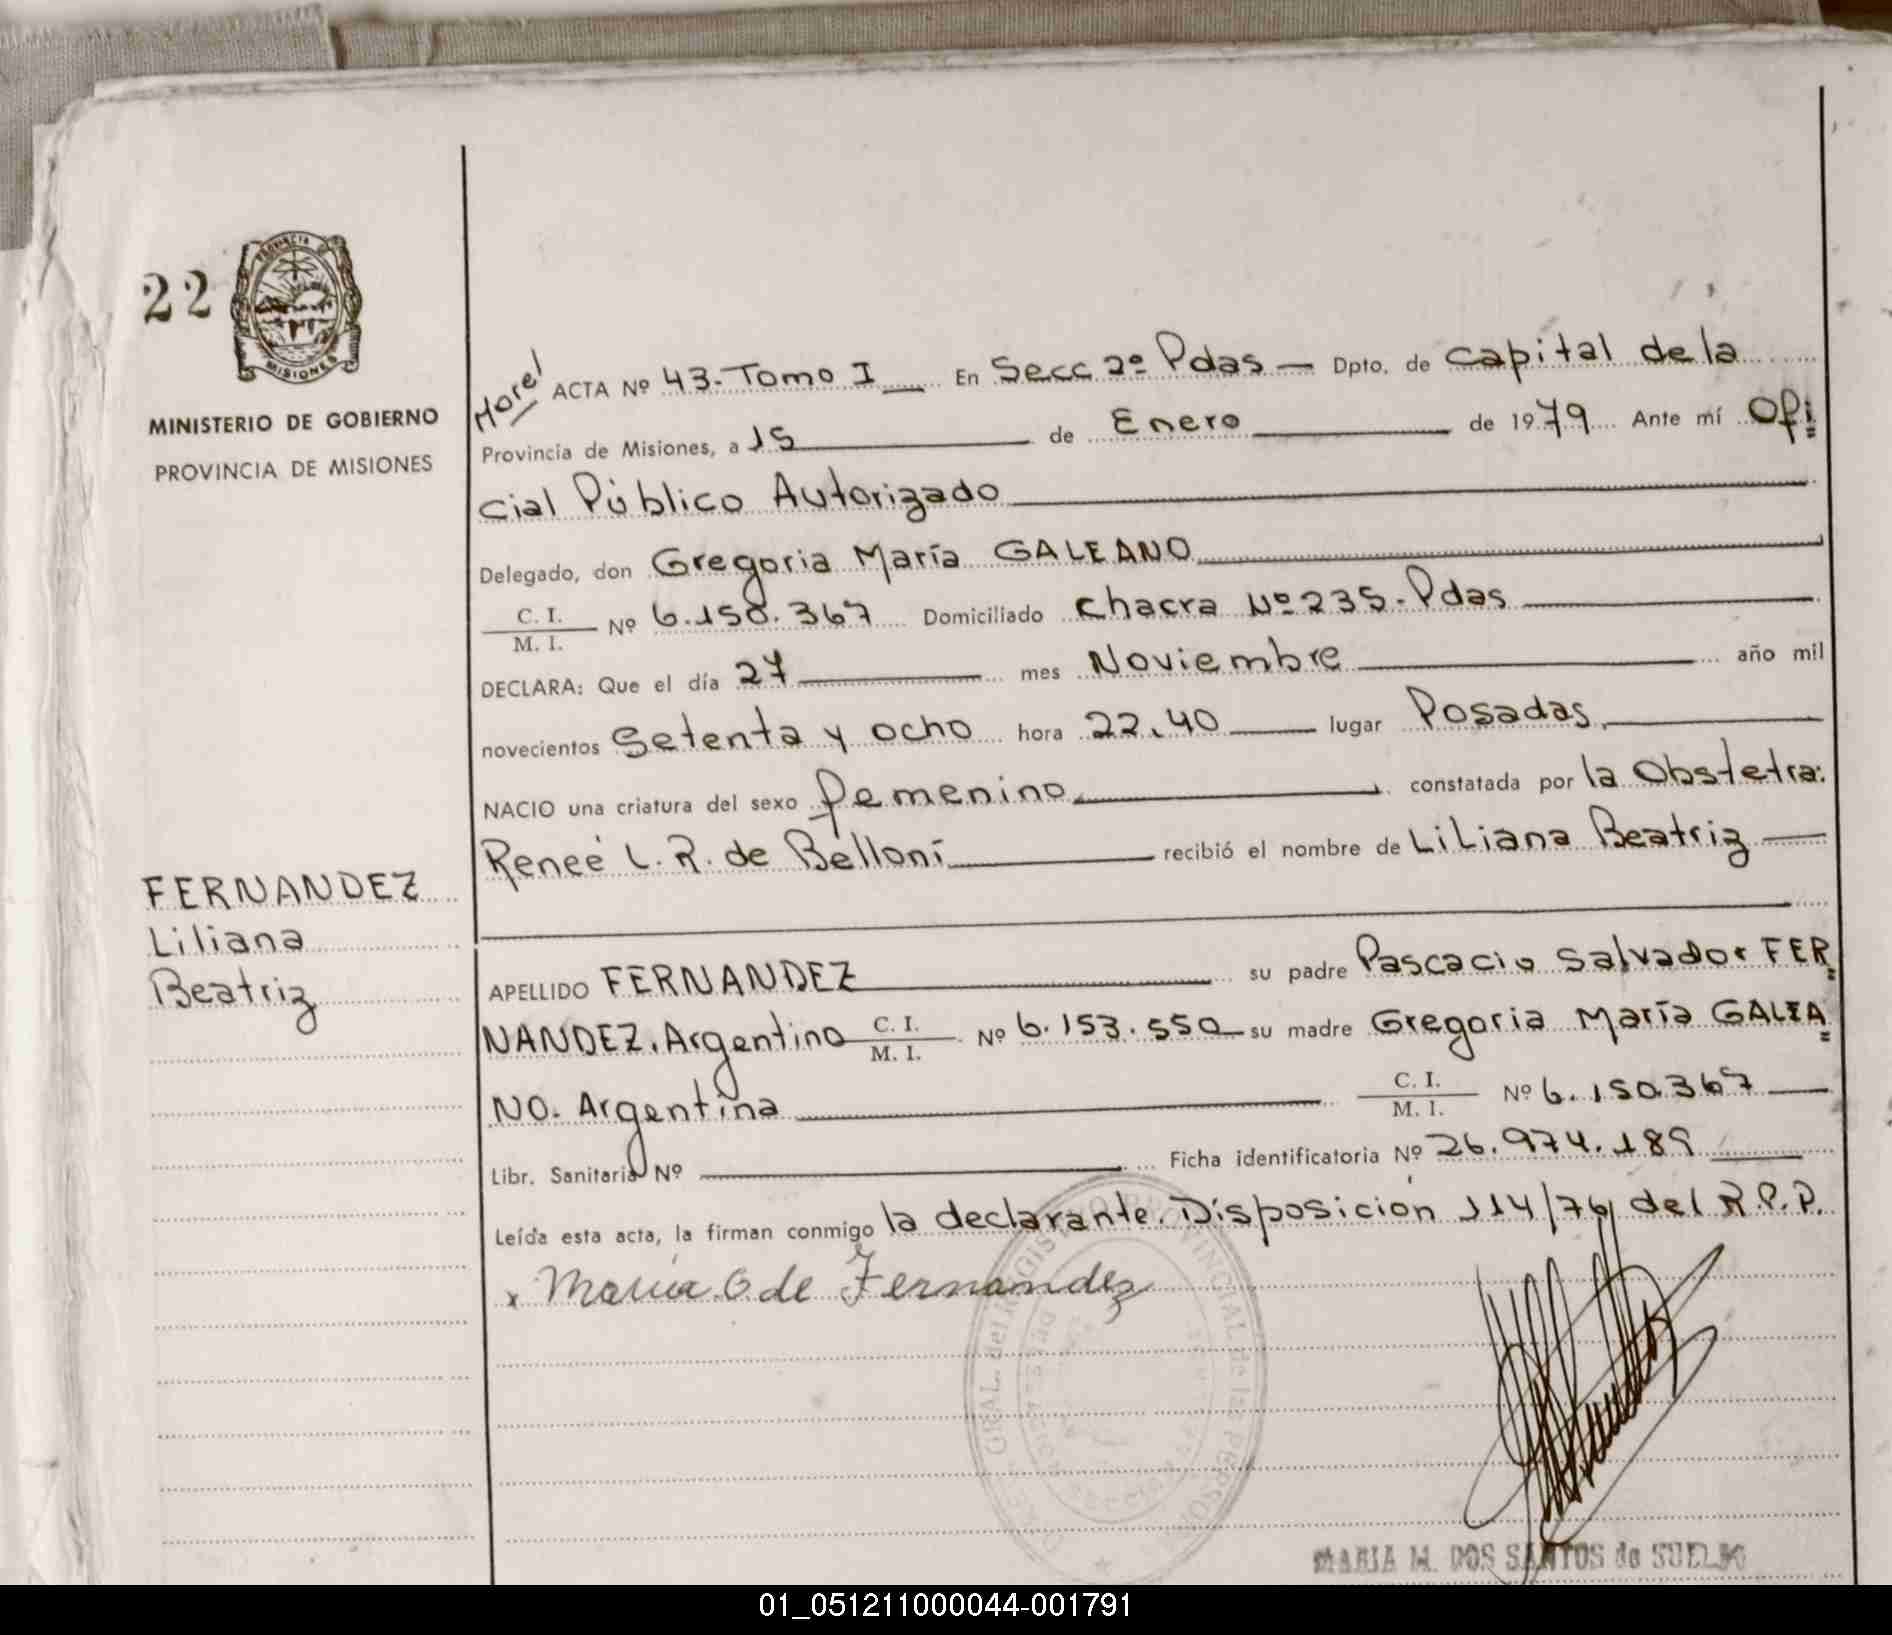 22
PROVINCIA DE
MISIONES
MINISTERIO DE GOBIERNO
PROVINCIA DE MISIONES
FERNANDEZ
Liliana
Beatriz
Morel
ACTA Nº 43-Tomo I En Secc 2º Pdas - Dpto. de Capital de la
Provincia de Misiones, a 15 de Enero de 1979 Ante mí Ofi
cial Público Autorizado
Delegado, don Gregoria María GALEANO
C. I. / M. I. Nº 6.150.367 Domiciliado chacra Nº 235-Pdas
DECLARA: Que el día 27 mes Noviembre año mil
novecientos Setenta y ocho hora 22,40 lugar Posadas
NACIO una criatura del sexo femenino constatada por la Obstetra:
Reneé L. R. de Belloni recibió el nombre de Liliana Beatriz
APELLIDO FERNANDEZ su padre Pascacio Salvador FER
NANDEZ. Argentino C. I. / M. I. Nº 6.153.550 su madre Gregoria María GALEA
NO. Argentina C. I. / M. I. Nº 6.150.367
Libr. Sanitaria Nº Ficha identificatoria Nº 26.974.189
Leída esta acta, la firman conmigo la declarante. Disposición 114/76 del R.P.P.
x María G de Fernandez
MARIA M. DOS SANTOS de SUELDO
01_051211000044-001791